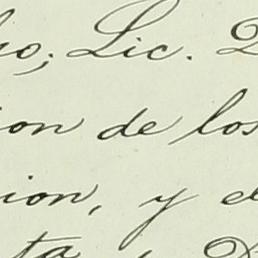 io; Lic. D
ion de los
ion, y el
ta